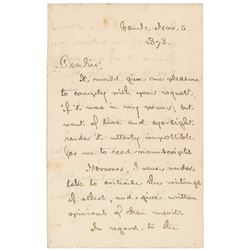 Camb. Nov. 5
1873.
Dear Sir,
It would give me pleasure
to comply with your request,
if it was in my power; but
want of time and eye-sight
render it utterly impossible
for me to read manuscripts.
Moreover, I never under-
take to criticise the writings
of others, and give written
opinions of their merits.
In regard to the